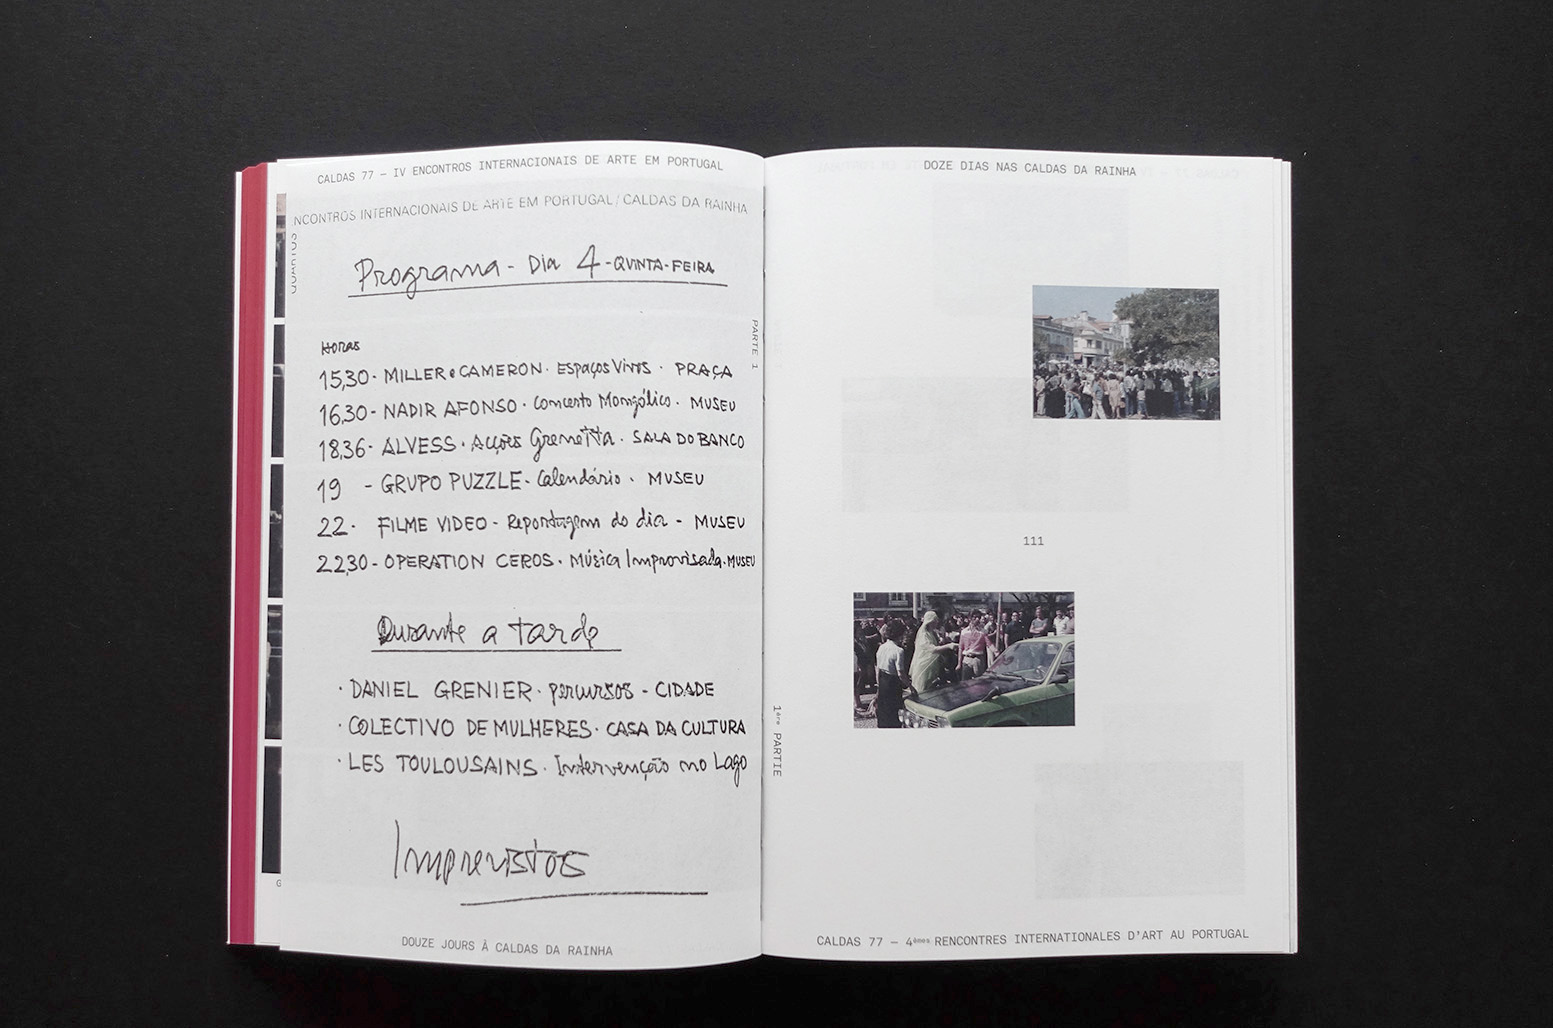 CALDAS 77 – IV ENCONTROS INTERNACIONAIS DE ARTE EM PORTUGAL
NCONTROS INTERNACIONAIS DE ARTE EM PORTUGAL/CALDAS DA RAINHA
QUARTOS
Programa - Dia 4 - QUINTA-FEIRA
Horas
15,30 - MILLER e CAMERON · Espaços Vivos · PRAÇA
16,30 - NADIR AFONSO · Concerto Mongólico · MUSEU
18,36 - ALVESS · Acções Grenetta · SALA DO BANCO
19 - GRUPO PUZZLE - Calendário · MUSEU
22 · FILME VIDEO - Reportagem do dia - MUSEU
22,30 - OPERATION CEROS · Música Improvisada · MUSEU
Durante a tarde
· DANIEL GRENIER · percursos - CIDADE
· COLECTIVO DE MULHERES · CASA DA CULTURA
· LES TOULOUSAINS · Intervenção no Lago
Imprevistos
PARTE 1
DOUZE JOURS À CALDAS DA RAINHA
DOZE DIAS NAS CALDAS DA RAINHA
111
1ère PARTIE
CALDAS 77 – 4èmes RENCONTRES INTERNATIONALES D'ART AU PORTUGAL